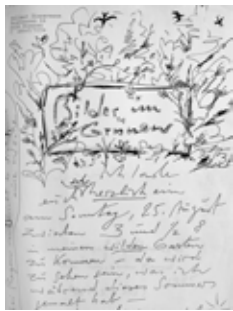 Bilder im
Grünen
Ich lade
euch herzlich ein
am Sonntag, 25. August
zwischen 3 und 8
in meinen wilden Garten
zu kommen – da wird
zu sehen sein, was ich
während dieses Sommers
gemalt hab –